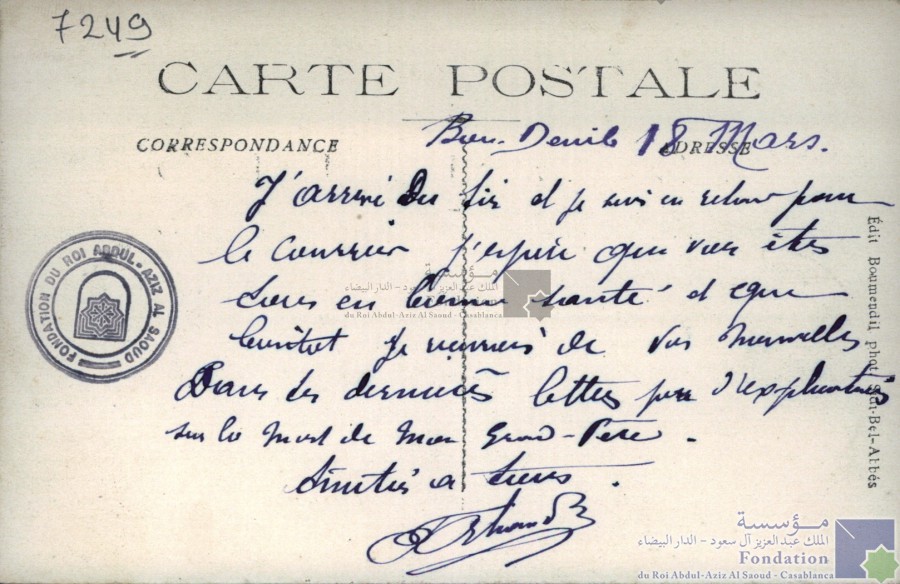 7249
CARTE POSTALE
CORRESPONDANCE
ADRESSE
18 Mars.
J'arrive du et je suis en retour pour
le courrier j'espère que vous êtes
tous en bonne santé et que
bientôt je de vos nouvelles
Dans les dernières lettres pas d'explications
sur la mort de mon Grand-Père.
Amitiés a tous.
Édit Boumendil phot Sidi-Bel-Abbés
FONDATION DU ROI ABDUL-AZIZ AL SAOUD
مؤسسة
الملك عبد العزيز آل سعود - الدار البيضاء
du Roi Abdul-Aziz Al Saoud - Casablanca
مؤسسة
الملك عبد العزيز آل سعود - الدار البيضاء
Fondation
du Roi Abdul-Aziz Al Saoud - Casablanca